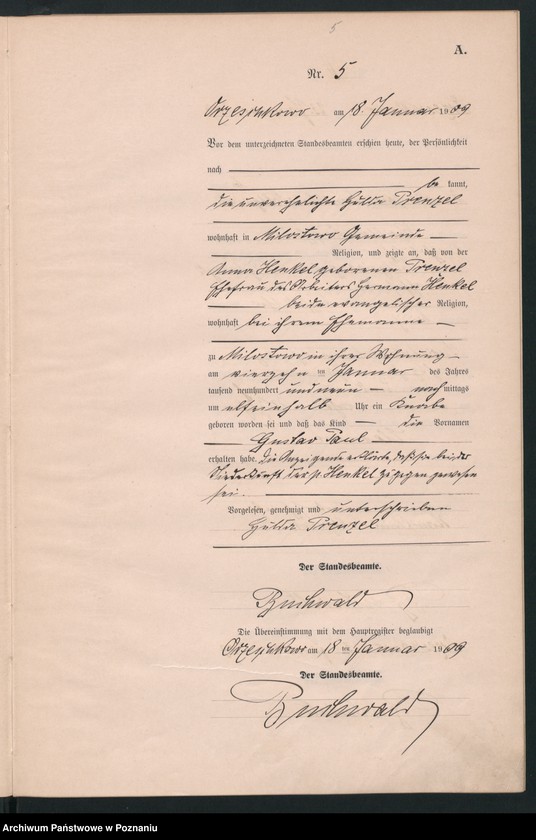 5
A.
Nr. 5
Orzeszkowo am 18. Januar 1909
Vor dem unterzeichneten Standesbeamten erschien heute, der Persönlichkeit
nach
be kannt,
die unverehelichte Hulda Prenzel
wohnhaft in Milostowo Gemeinde
Religion, und zeigte an, daß von der
Anna Henkel geborenen Prenzel
Ehefrau des Arbeiters Hermann Henkel
beide evangelischer Religion,
wohnhaft bei ihrem Ehemanne
zu Milostowo in ihrer Wohnung
am vierzehn ten Januar des Jahres
tausend neunhundert und neun nach mittags
um elfeinhalb Uhr ein Knabe
geboren worden sei und daß das Kind die Vornamen
Gustav Paul
erhalten habe. Die Anzeigende erklärte, daß sie bei der
Niederkunft der p. Henkel zugegen gewesen
sei.
Vorgelesen, genehmigt und unterschrieben
Hulda Prenzel
Der Standesbeamte.
Buchwald
Die Übereinstimmung mit dem Hauptregister beglaubigt
Orzeszkowo am 18 ten Januar 1909
Der Standesbeamte.
Buchwald
Archiwum Państwowe w Poznaniu